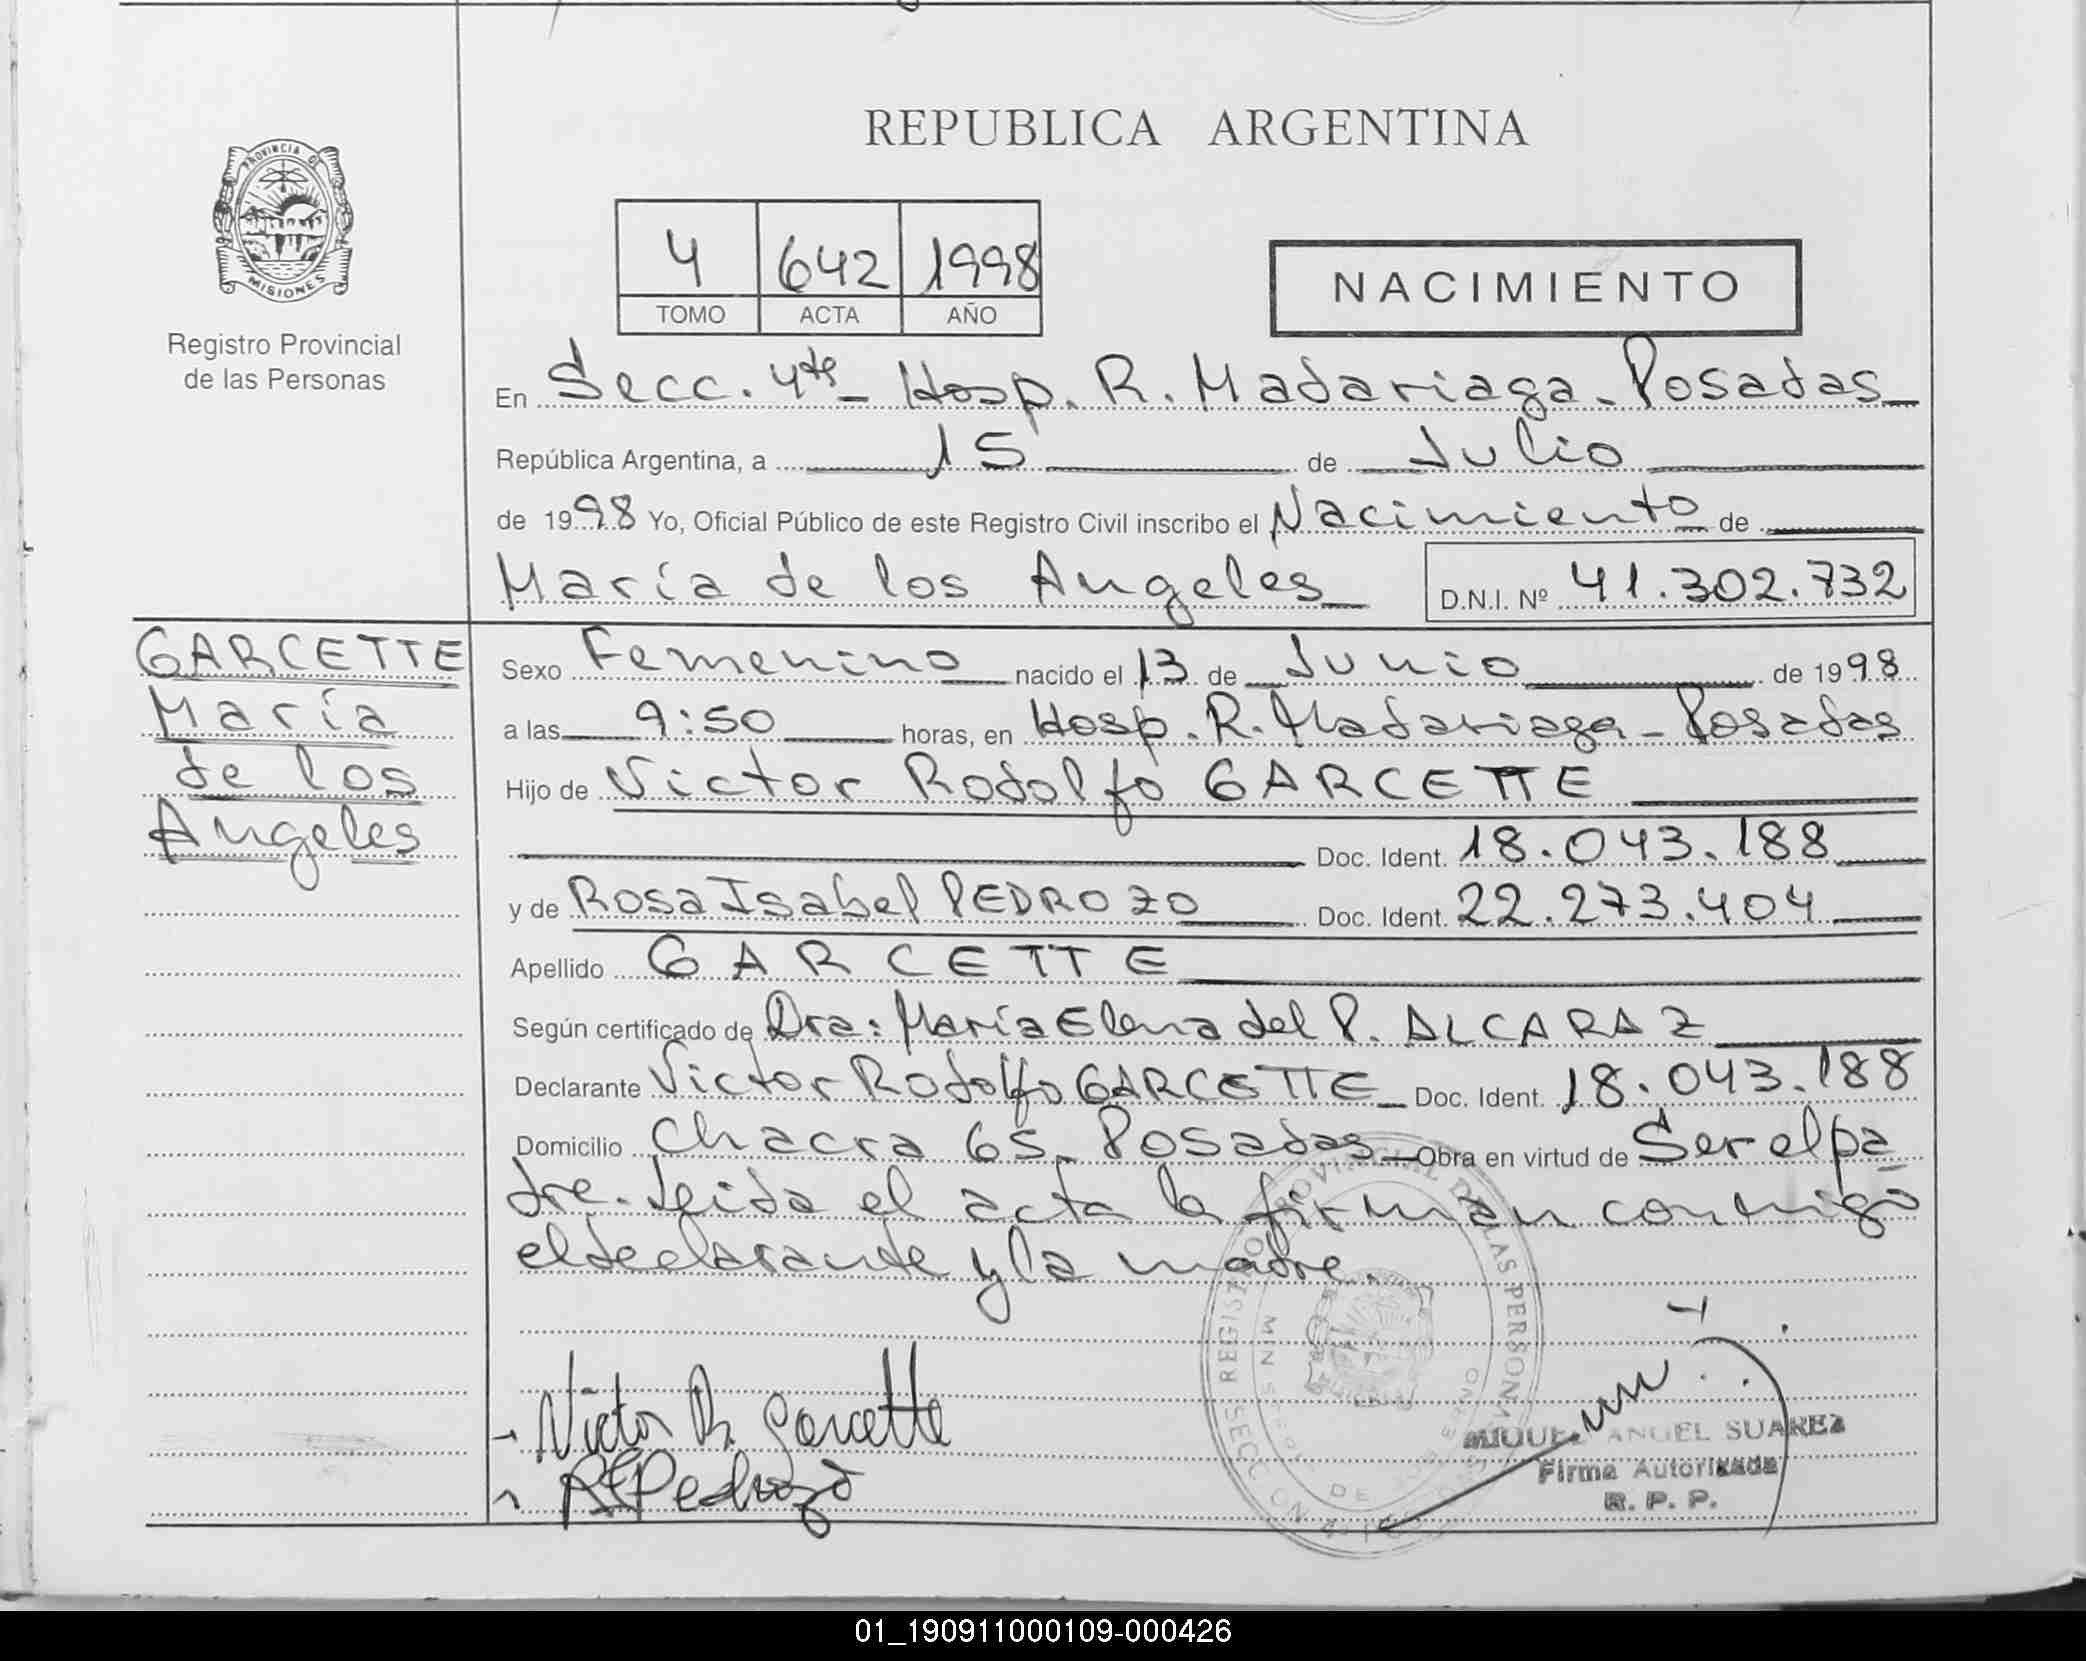 REPUBLICA ARGENTINA
PROVINCIA D
MISIONES
Registro Provincial
de las Personas
4 642 1998
TOMO ACTA AÑO
NACIMIENTO
En Secc. 4ta - Hosp. R. Madariaga - Posadas
República Argentina, a 15 de Julio
de 1998 Yo, Oficial Público de este Registro Civil inscribo el Nacimiento de
María de los Angeles D.N.I. Nº 41.302.732
GARCETTE
María
de los
Angeles
Sexo Femenino nacido el 13 de Junio de 1998
a las 9:50 horas, en Hosp. R. Madariaga - Posadas
Hijo de Victor Rodolfo GARCETTE
Doc. Ident. 18.043.188
y de Rosa Isabel PEDROZO Doc. Ident. 22.273.404
Apellido GARCETTE
Según certificado de Dra: María Elena del P. ALCARAZ
Declarante Victor Rodolfo GARCETTE Doc. Ident. 18.043.188
Domicilio Chacra 65 - Posadas Obra en virtud de Ser el pa
dre. Leida el acta la firman conmigo
el declarante y la madre.
REGISTRO PROVINCIAL DE LAS PERSONAS
Victor R. Garcette
RIPedrozo
MIGUEL ANGEL SUAREZ
Firma Autorizada
R. P. P.
01_190911000109-000426